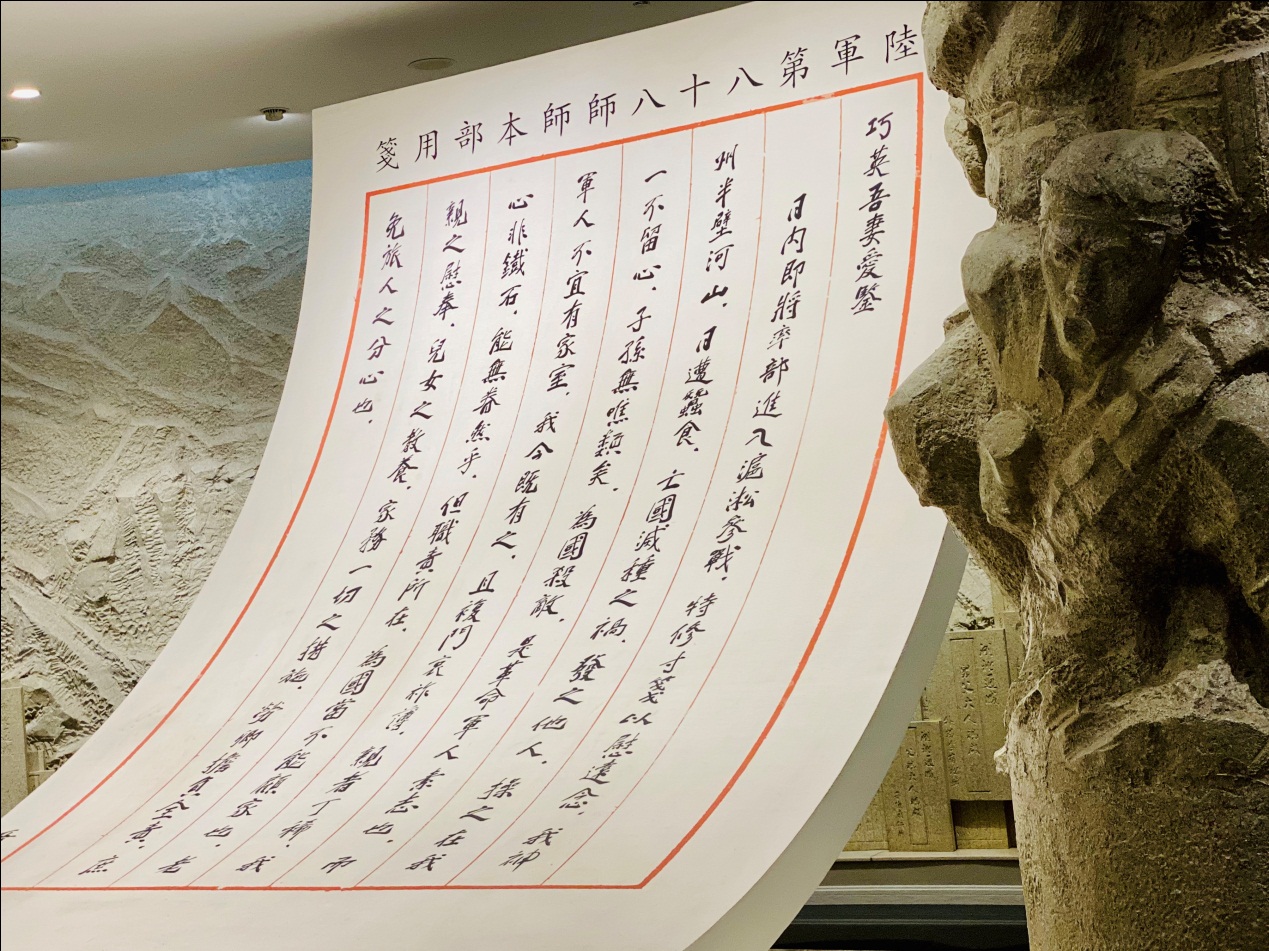 陸軍第八十八師師本部用箋
巧英吾妻愛鑒
日内即將率部進入滬淞參戰，特修寸箋以慰遠念，我神
州半壁河山，日遭蠶食，亡國滅種之禍，發之他人，操之在我
一不留心，子孫無噍類矣，為國殺敵，是革命軍人素志也，而
軍人不宜有家室，我今既有之，且複門衰祚薄，親者丁稀，我
心非鐵石，能無眷然乎，但職責所在，為國當不能顧家也，老
親之慰奉，兒女之教養，家務一切之措施，諸卿擔負全責，庶
免旅人之分心也，